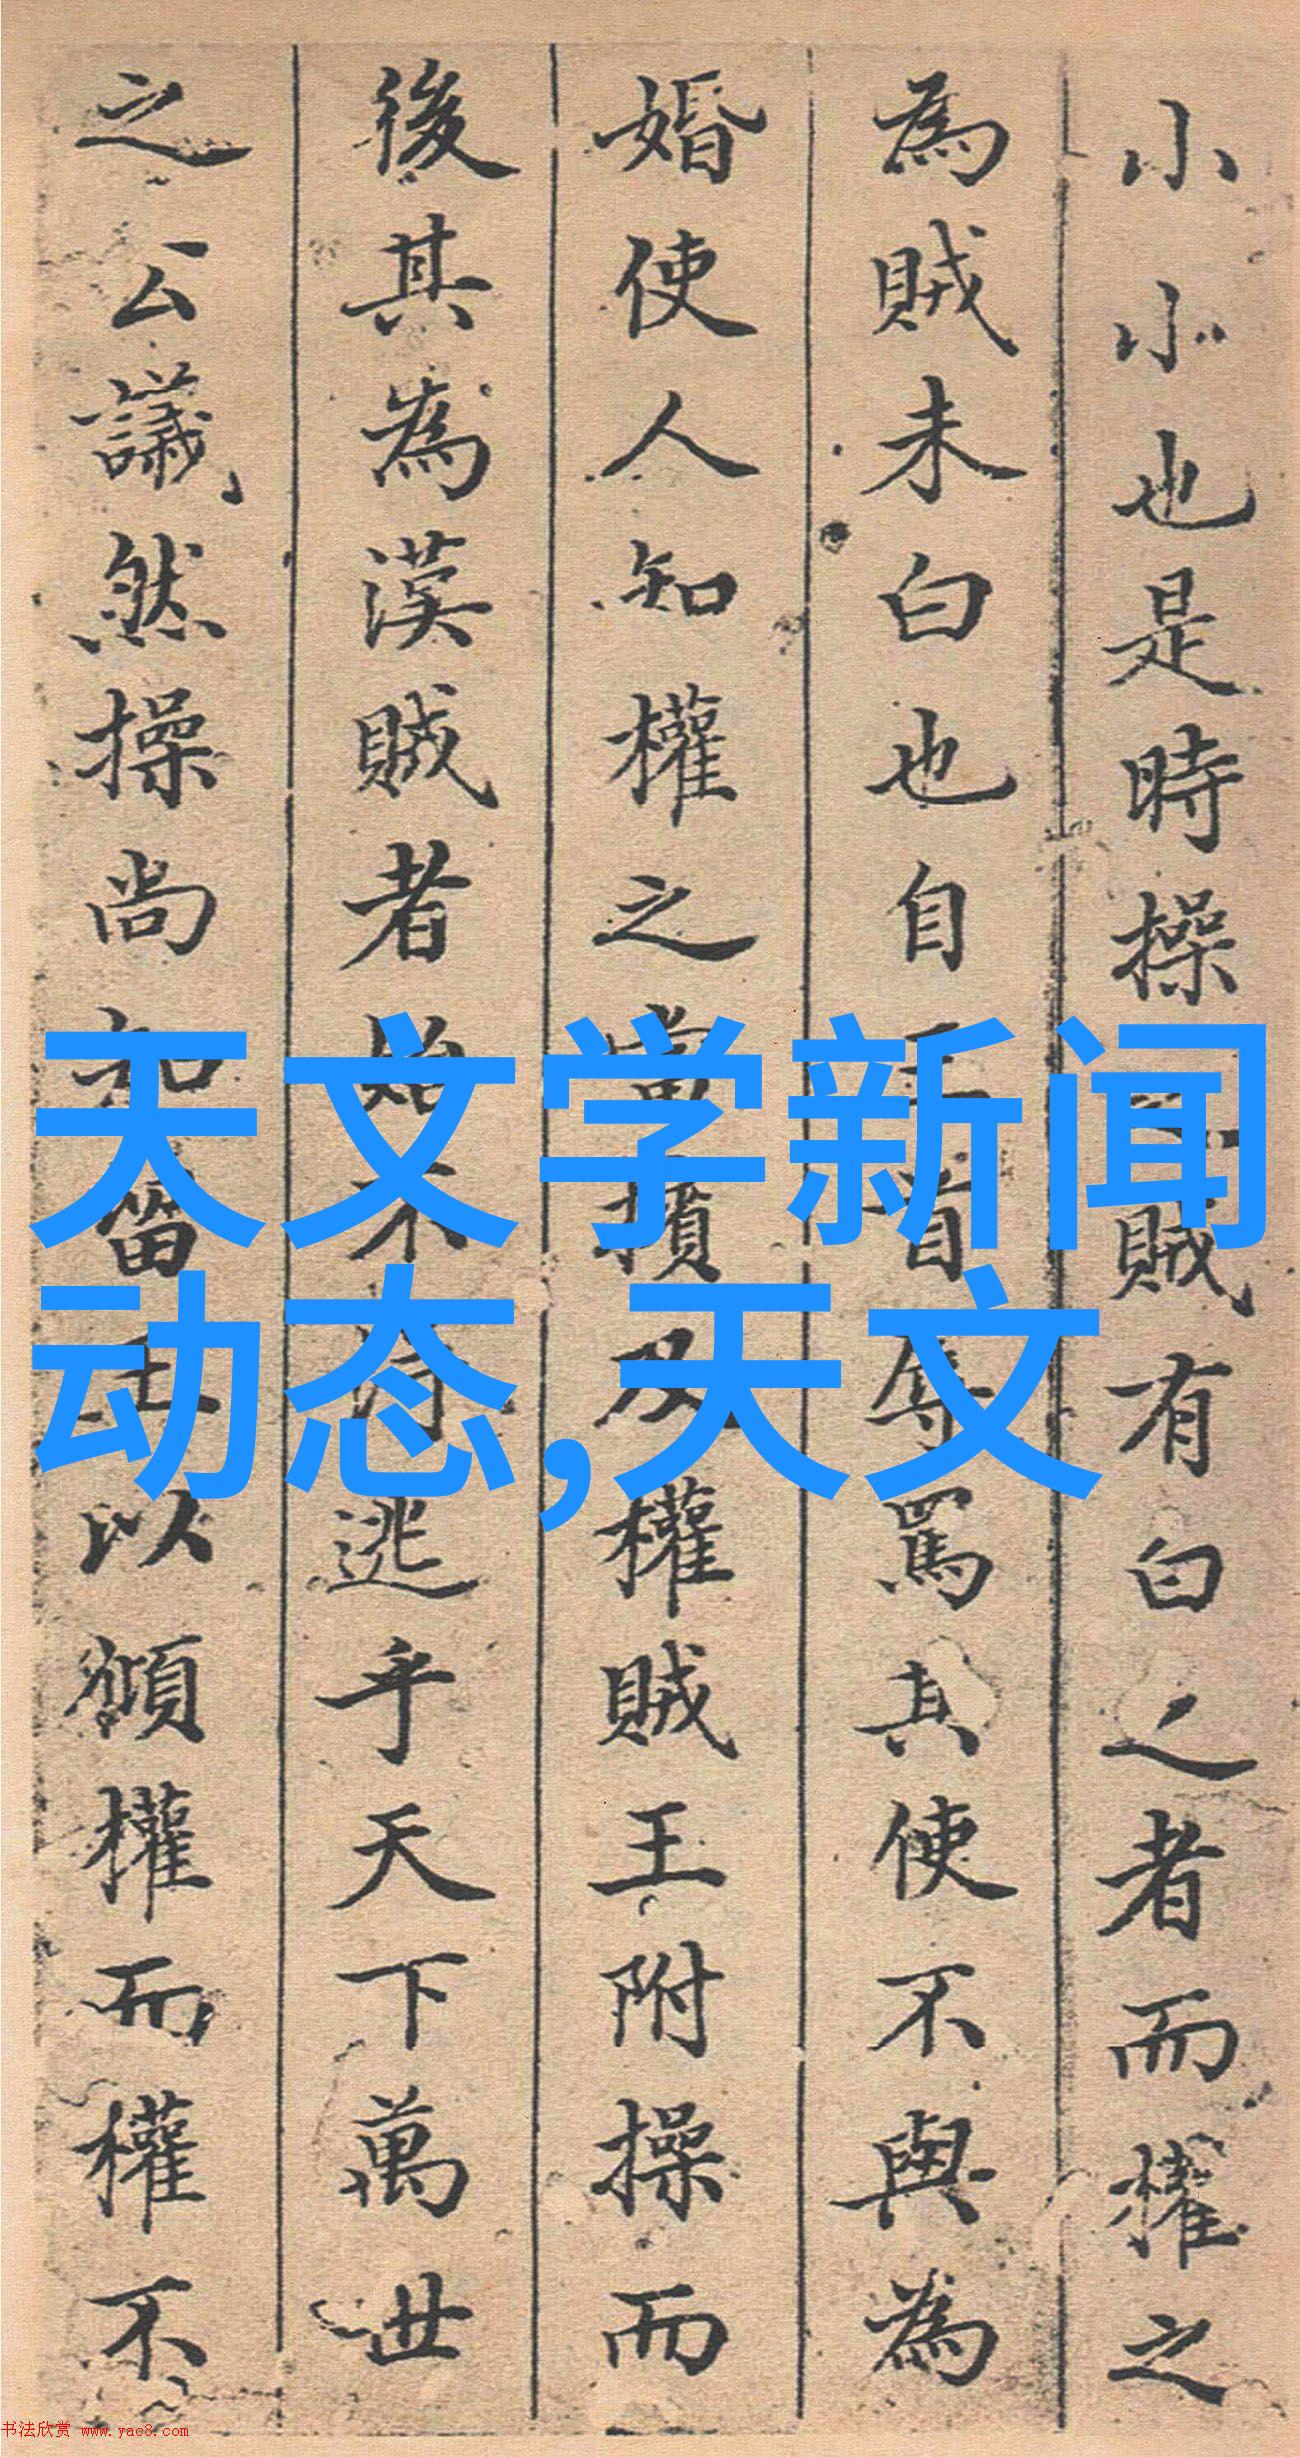 小小也是時操賊有白之者而權之
為賊未白也自王首辱罵其使不與為
婚使人知權之當擯及權賊王附操而
後其為漢賊者始不逃乎天下萬世
之公議然操尚知畄王以頒權而權不
天文学新闻
动态,天文
书法欣赏 www.yac8.com